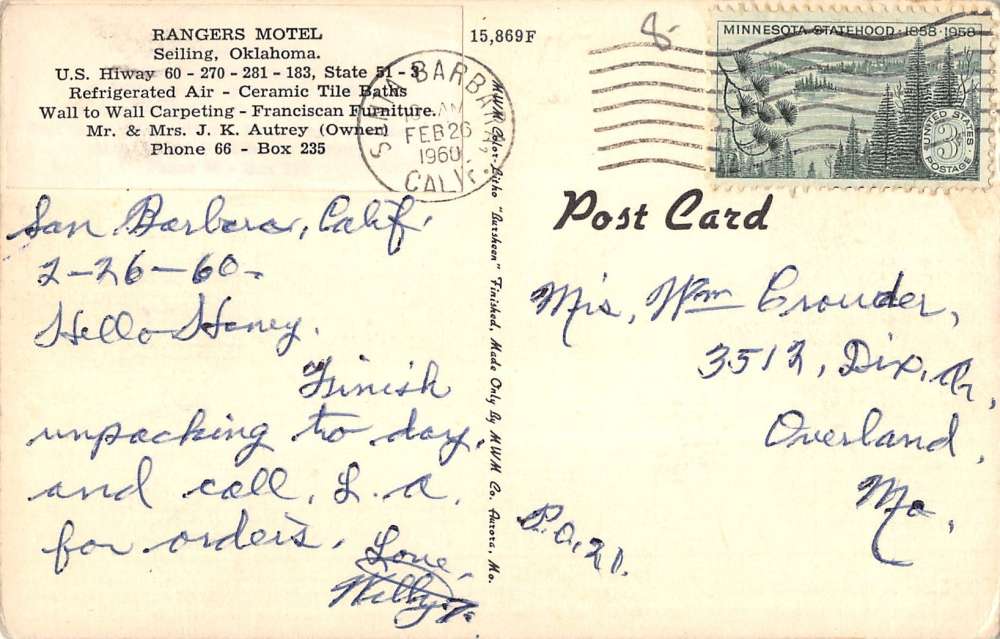 RANGERS MOTEL
Seiling, Oklahoma.
U.S. Hiway 60 - 270 - 281 - 183, State 51 - 3
Refrigerated Air - Ceramic Tile Baths
Wall to Wall Carpeting - Franciscan Furniture.
Mr. & Mrs. J. K. Autrey (Owner)
Phone 66 - Box 235
15,869F
8-
SANTA BARBARA,
AM
FEB 26
1960
CALIF.
MINNESOTA STATEHOOD · 1858 · 1958
UNITED STATES
3¢
POSTAGE
Post Card
MWM Color-Litho "Aursheen" Finished. Made Only By MWM Co. Aurora, Mo.
San Barbara, Calif.
2-26-60-
Hello Honey.
Finish
unpacking to day.
and call, L. A.
for orders.
Love,
Willy
Mrs, Wm Crowder,
3512, Dix,
Overland,
Mo,
P.O. 21.